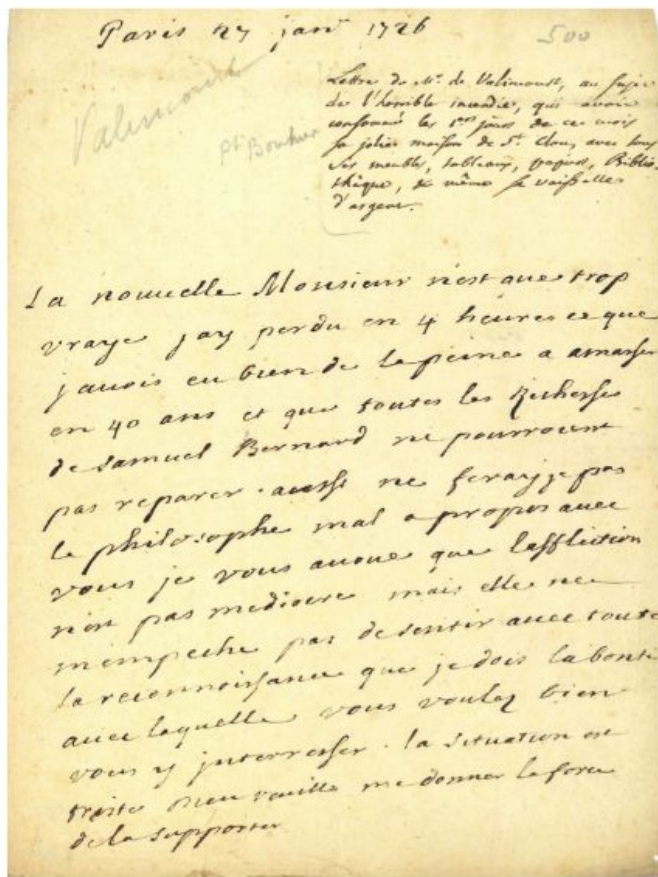 Paris 27 janr 1726
500
Valimont
Pt Bouhier
Lettre de Mr. de Valimont, au sujet
de l'horrible incendie, qui avoit
consommé les 1ers jours de ce mois
sa jolie maison de St. Clou, avec tous
ses meubles, tableaux, papiers, Biblio-
thèque, & même sa vaisselle
d'argent.
La nouvelle Monsieur n'est que trop
vraye jay perdu en 4 heures ce que
javois eu bien de la peine a amasser
en 40 ans et que toutes les richesse
de Samuel Bernard ne pourroient
pas reparer. aussi ne ferayje pas
le philosophe mal a propos avec
vous je vous avoue que laffliction
n'est pas mediocre mais elle ne
mempeche pas de sentir avec toute
la reconnoissance que je dois la bonté
avec laquelle vous voulez bien
vous y interresser. la situation est
triste dieu veuille me donner la force
de la supporter